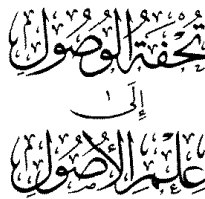 تُحْفَةُ الْوُصُولِ
إِلَى
عِلْمِ الْأُصُولِ